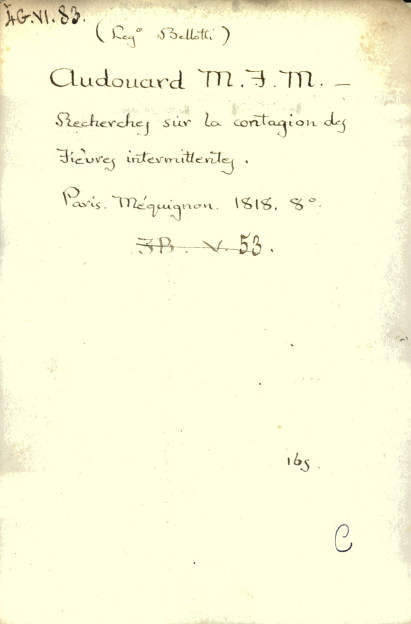 ÄG.VI.83.
(Leg° Bellotti)
Audouard M.F.M. —
Recherches sur la contagion des
Fièvres intermittentes.
Paris. Méquignon. 1818. 8°.
FB. V. 53.
165.
C